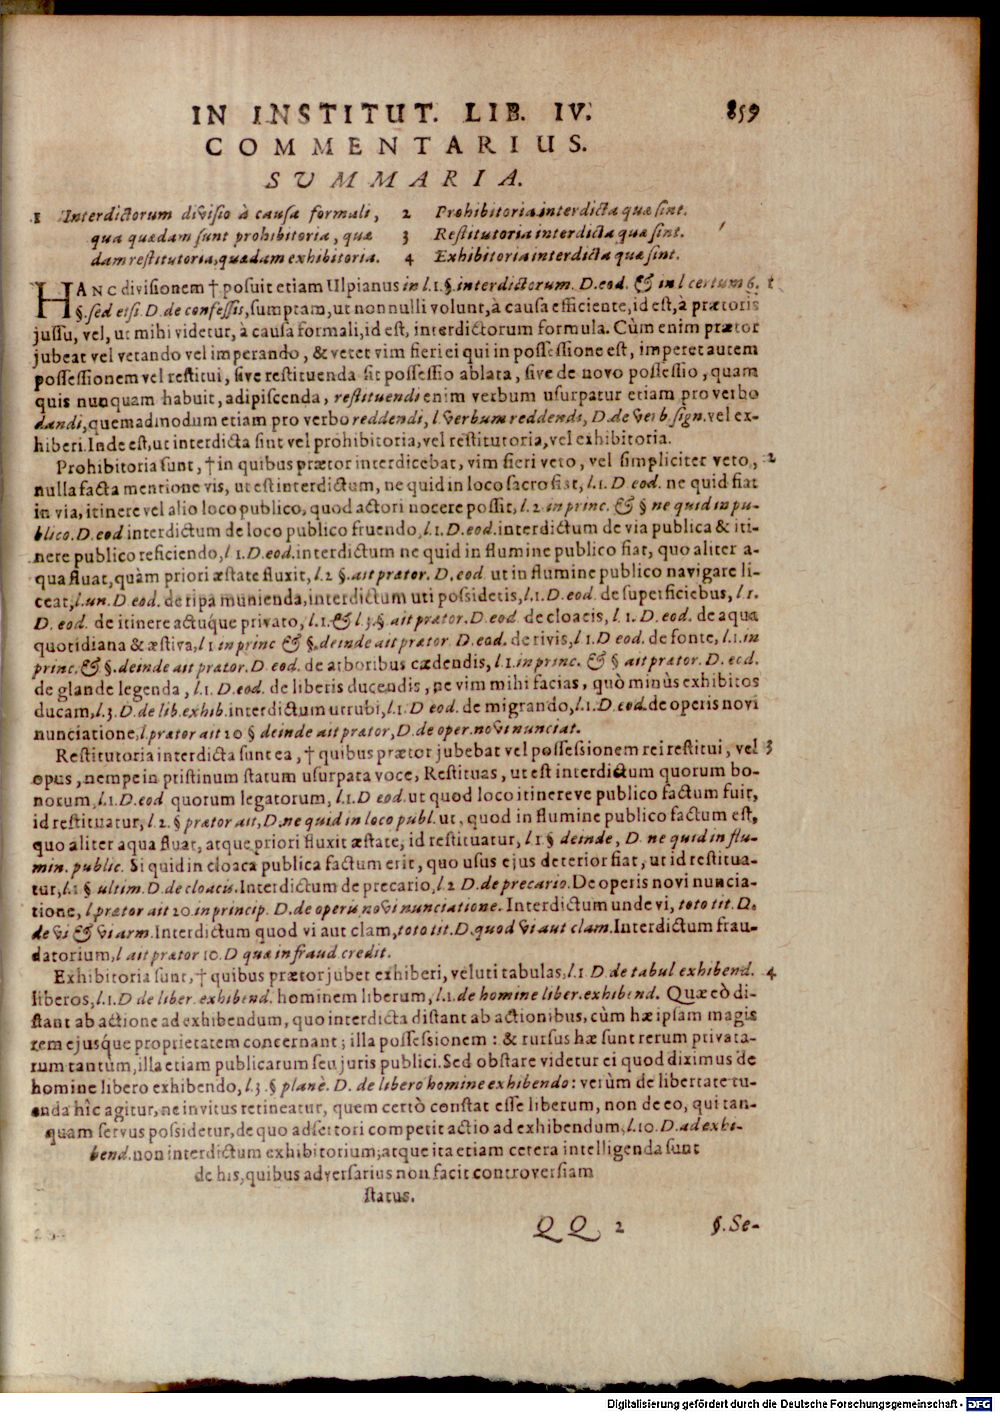 IN INSTITUT. LIB. IV. 859
COMMENTARIUS.
SUMMARIA.
1 Interdictorum divisio à causa formali,
qua quædam sunt prohibitoria, quæ
dam restitutoria, quædam exhibitoria.
2 Prohibitoria interdicta quæ sint.
3 Restitutoria interdicta quæ sint.
4 Exhibitoria interdicta quæ sint.
HANC divisionem † posuit etiam Ulpianus in l. 1. §. interdictorum. D. eod. & in l certum 6. 1
§. sed etsi. D. de confessis, sumptam, ut nonnulli volunt, à causa efficiente, id est, à prætoris
jussu, vel, ut mihi videtur, à causa formali, id est, interdictorum formula. Cùm enim prætor
jubeat vel vetando vel imperando, & vetet vim fieri ei qui in possessione est, imperet autem
possessionem vel restitui, sive restituenda sit possessio ablata, sive de novo possessio, quam
quis nunquam habuit, adipiscenda, restituendi enim verbum usurpatur etiam pro verbo
dandi, quemadmodum etiam pro verbo reddendi, l verbum reddendi, D. de verb. sign. vel ex-
hiberi. Inde est, ut interdicta sint vel prohibitoria, vel restitutoria, vel exhibitoria.
Prohibitoria sunt, † in quibus prætor interdicebat, vim fieri veto, vel simpliciter veto, 2
nulla facta mentione vis, ut est interdictum, ne quid in loco sacro fiat, l. 1. D. eod. ne quid fiat
in via, itinere vel alio loco publico, quod actori nocere possit, l. 2 in princ. & § ne quid in pu-
blico. D. eod interdictum de loco publico fruendo, l. 1. D. eod. interdictum de via publica & iti-
nere publico reficiendo, l 1. D. eod. interdictum ne quid in flumine publico fiat, quo aliter a-
qua fluat, quàm priori æstate fluxit, l. 2 §. ait prætor. D. eod ut in flumine publico navigare li-
ceat, l. un. D eod. de ripa munienda, interdictum uti possidetis, l. 1. D. eod. de superficiebus, l. 1.
D. eod. de itinere actuque privato, l. 1. & l 3. § ait prætor. D. eod. de cloacis, l. 1. D. eod. de aqua
quotidiana & æstiva, l 1 in princ & §. deinde ait prætor D. eod. de rivis, l. 1. D eod. de fonte, l. 1. in
princ. & §. deinde ait prætor. D. eod. de arboribus cædendis, l. 1. in princ. & § ait prætor. D. eod.
de glande legenda, l. 1. D. eod. de liberis ducendis, ne vim mihi facias, quò minùs exhibitos
ducam, l. 3. D. de lib. exhib. interdictum utrubi, l. 1. D eod. de migrando, l. 1. D. eod. de operis novi
nunciatione, l. prætor ait 20 § deinde ait prætor, D. de oper. novi nunciat.
Restitutoria interdicta sunt ea, † quibus prætor jubebat vel possessionem rei restitui, vel 3
opus, nempe in pristinum statum usurpata voce, Restituas, ut est interdictum quorum bo-
norum, l. 1. D. eod quorum legatorum, l. 1. D eod. ut quod loco itinereve publico factum fuit,
id restituatur, l. 2. § prætor ait, D. ne quid in loco publ. ut, quod in flumine publico factum est,
quo aliter aqua fluat, atque priori fluxit æstate, id restituatur, l. 1 § deinde, D. ne quid in flu-
min. public. Si quid in cloaca publica factum erit, quo usus ejus deterior fiat, ut id restitua-
tur, l. 1 § ultim. D. de cloacis. Interdictum de precario, l. 2 D. de precario. De operis novi nuncia-
tione, l. prætor ait 20. in princip. D. de operis novi nunciatione. Interdictum unde vi, toto tit. D.
de vi & vi arm. Interdictum quod vi aut clam, toto tit. D. quod vi aut clam. Interdictum frau-
datorium, l ait prætor 10. D quæ in fraud. credit.
Exhibitoria sunt, † quibus prætor jubet exhiberi, veluti tabulas, l. 1. D. de tabul exhibend. 4
liberos, l. 1. D de liber. exhibend. hominem liberum, l. 1. de homine liber. exhibend. Quæ eò di-
stant ab actione ad exhibendum, quo interdicta distant ab actionibus, cùm hæ ipsam magis
rem ejusque proprietatem concernant; illa possessionem: & rursus hæ sunt rerum privata-
rum tantùm, illa etiam publicarum seu juris publici. Sed obstare videtur ei quod diximus de
homine libero exhibendo, l. 3. § planè. D. de libero homine exhibendo: verùm de libertate tu-
enda hîc agitur, ne invitus retineatur, quem certò constat esse liberum, non de eo, qui tan-
quam servus possidetur, de quo adsertori competit actio ad exhibendum, l. 10. D. ad exhi-
bend. non interdictum exhibitorium; atque ita etiam cetera intelligenda sunt
de his, quibus adversarius non facit controversiam
status.
QQ 2 §. Se-
Digitalisierung gefördert durch die Deutsche Forschungsgemeinschaft - DFG